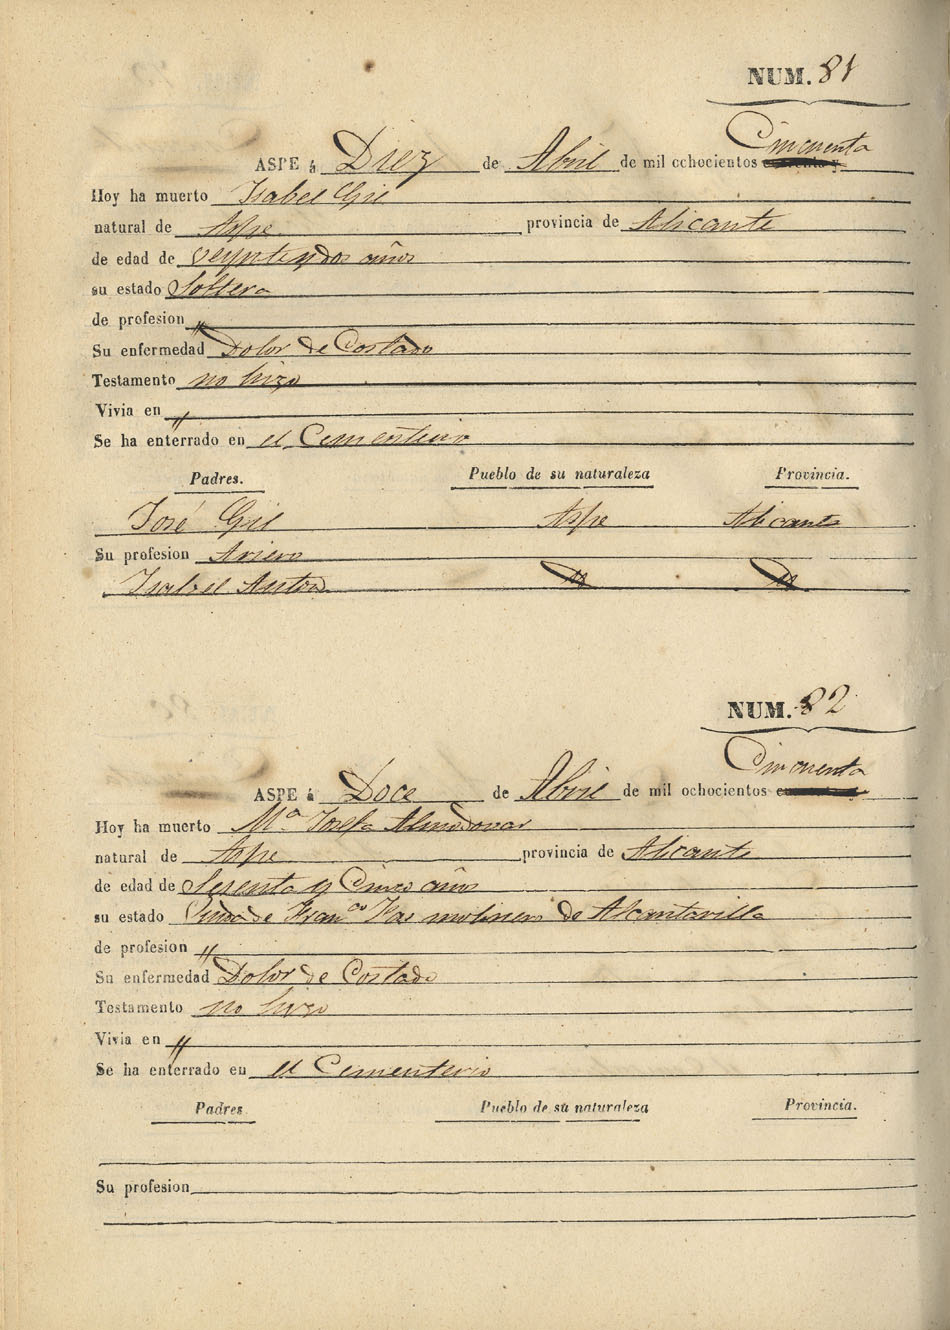 NUM. 81
Cincuenta
ASPE á Diez de Abril de mil ochocientos cuarenta y
Hoy ha muerto Isabel Gil
natural de Aspe provincia de Alicante
de edad de veynte y dos años
su estado Soltera
de profesion "
Su enfermedad Dolor de Costado
Testamento no hizo
Vivia en "
Se ha enterrado en el Cementerio
Padres. Pueblo de su naturaleza Provincia.
José Gil Aspe Alicante
Su profesion Ariero
Isabel Anton Id Id
NUM. 82
Cincuenta
ASPE á Doce de Abril de mil ochocientos
Hoy ha muerto Mª Josefa Almodovar
natural de Aspe provincia de Alicante
de edad de Sesenta y Cinco años
su estado Viuda de Franco molinero de Alcantarilla
de profesion "
Su enfermedad Dolor de Costado
Testamento no hizo
Vivia en "
Se ha enterrado en el Cementerio
Padres. Pueblo de su naturaleza Provincia.
Su profesion